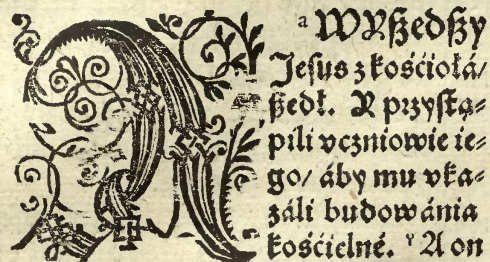 A
ᵃ WYszedszy
Jesus z kościołá/
szedł. Y przystą⸗
pili vczniowie ie⸗
go/ áby mu vka⸗
záli budowánia
kośćielné. ʸ A on